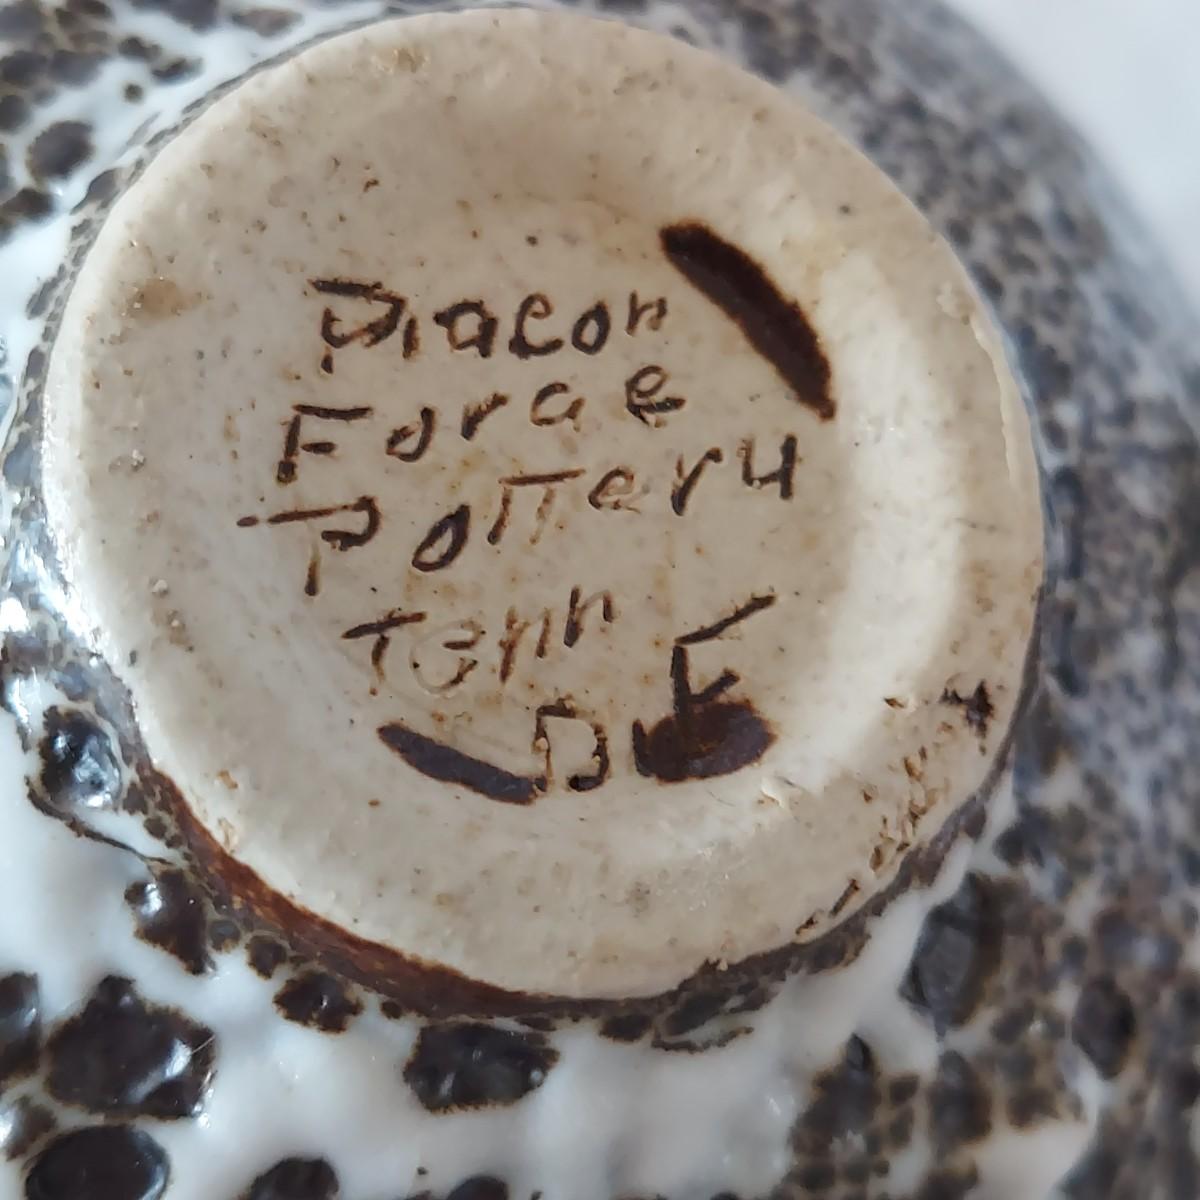 Pigeon
Forge
Pottery
Tenn
D F